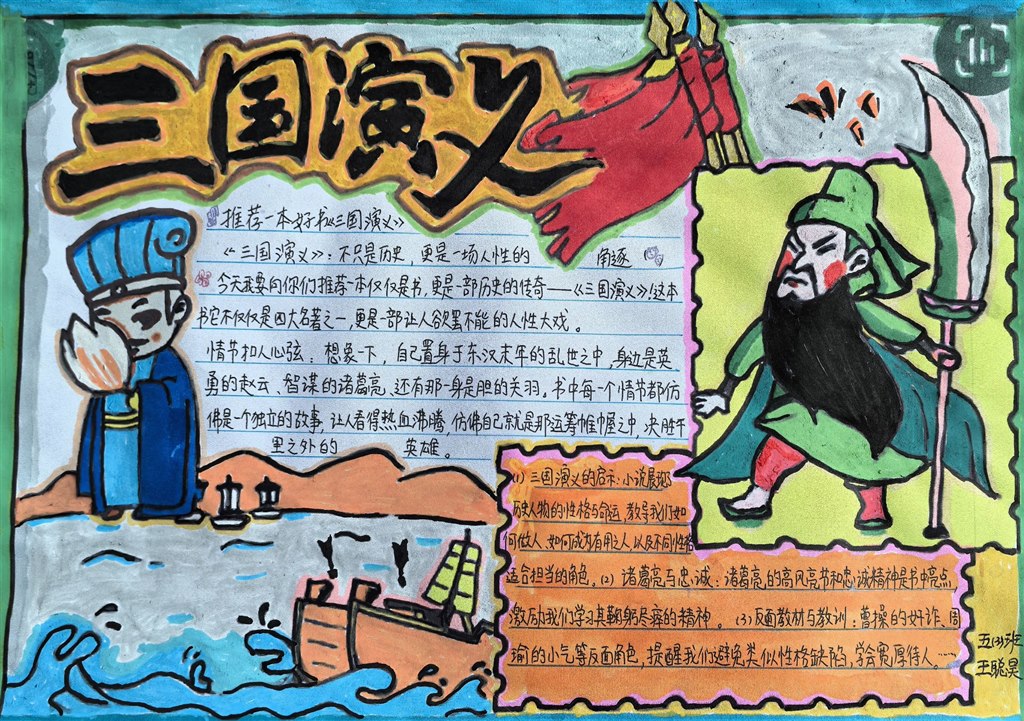 三国演义
推荐一本好书《三国演义》
《三国演义》：不只是历史，更是一场人性的 角逐
今天我要向你们推荐一本仅仅是书，更是一部历史的传奇——《三国演义》！这本
书它不仅仅是四大名著之一，更是一部让人欲罢不能的人性大戏。
情节扣人心弦：想象一下，自己置身于东汉末年的乱世之中，身边是英
勇的赵云、智谋的诸葛亮，还有那一身是胆的关羽。书中每一个情节都仿
佛是一个独立的故事，让人看得热血沸腾，仿佛自己就是那运筹帷幄之中，决胜千
里之外的 英雄。
(1) 三国演义的启示：小说展现
历史人物的性格与命运，教导我们如
何做人、如何成为有用之人，以及不同性格
适合担当的角色。(2) 诸葛亮与忠诚：诸葛亮的高风亮节和忠诚精神是书中亮点，
激励我们学习其鞠躬尽瘁的精神。(3) 反面教材与教训：曹操的奸诈、周
瑜的小气等反面角色，提醒我们避免类似性格缺陷，学会宽厚待人。……
五(3)班
王聪昊